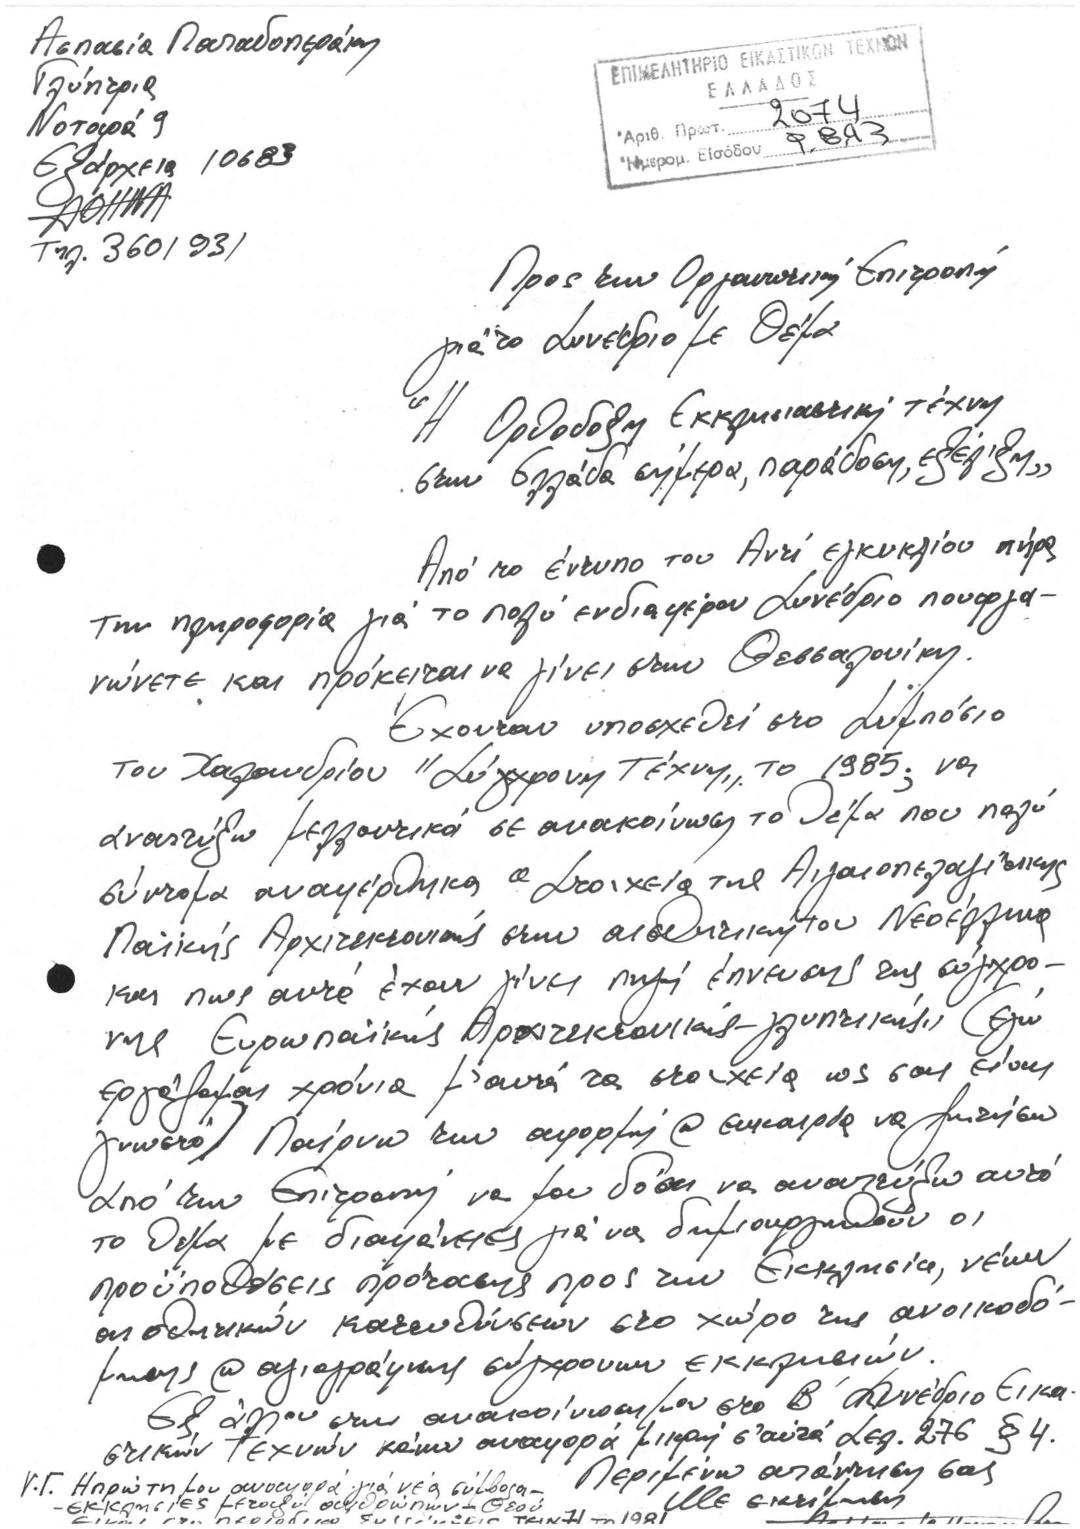 Ασπασία Παπαδοπεράκη
Γλύπτρια
Νοταρά 9
Εξάρχεια 10683
ΑΘΗΝΑ
Τηλ. 3601931
ΕΠΙΜΕΛΗΤΗΡΙΟ ΕΙΚΑΣΤΙΚΩΝ ΤΕΧΝΩΝ
ΕΛΛΑΔΟΣ
Ἀριθ. Πρωτ. 2074
Ἡμερομ. Εἰσόδου 9.8.93
Προς την Οργανωτική Επιτροπή
γιά το Συνέδριο με Θέμα
"Η Ορθόδοξη Εκκλησιαστική τέχνη
στην Ελλάδα σήμερα, παράδοση, εξέλιξη"
Από το έντυπο του Αντί εγκυκλίου πήρα
την πληροφορία γιά το πολύ ενδιαφέρον Συνέδριο που οργα-
νώνετε και πρόκειται να γίνει στην Θεσσαλονίκη.
Έχοντας υποσχεθεί στο Συμπόσιο
του Χαλανδρίου "Σύγχρονη Τέχνη" το 1985, να
αναπτύξω μελλοντικά σε ανακοίνωση το θέμα που πολύ
σύντομα αναφέρθηκα "Στοιχεία της Αιγαιοπελαγίτικης
Λαϊκής Αρχιτεκτονικής στην αισθητική του Νεοέλληνα
και πως αυτά έχουν γίνει πηγή έπνευσης της σύγχρο-
νης Ευρωπαϊκής Αρχιτεκτονικής-γλυπτικής" (εγώ
εργάζομαι χρόνια μ'αυτά τα στοιχεία ως σας είναι
γνωστό) Παίρνω την αφορμή @ ευκαιρία να ζητήσω
από την Επιτροπή να μου δόσει να αναπτύξω αυτό
το θέμα με διαφάνειες γιά να δημιουργηθούν οι
προϋποθέσεις πρότασης προς την Εκκλησία, νέων
αισθητικών κατευθύνσεων στο χώρο της ανοικοδό-
μησης @ αγιογράφησης σύγχρονων εκκλησιών.
Εξ άλλου στην ανακοίνωση μου στο Β΄ Συνέδριο Εικα-
στικών Τεχνών κάνω αναφορά μικρή σ'αυτά Σελ. 276 § 4.
Περιμένω απάντηση σας
Με εκτίμηση
Υ.Γ. Η πρώτη μου αναφορά γιά νέα σύμβολα-
-εκκλησίες μεταξύ ανθρώπων-Θεού
στο περιοδικό το 1981